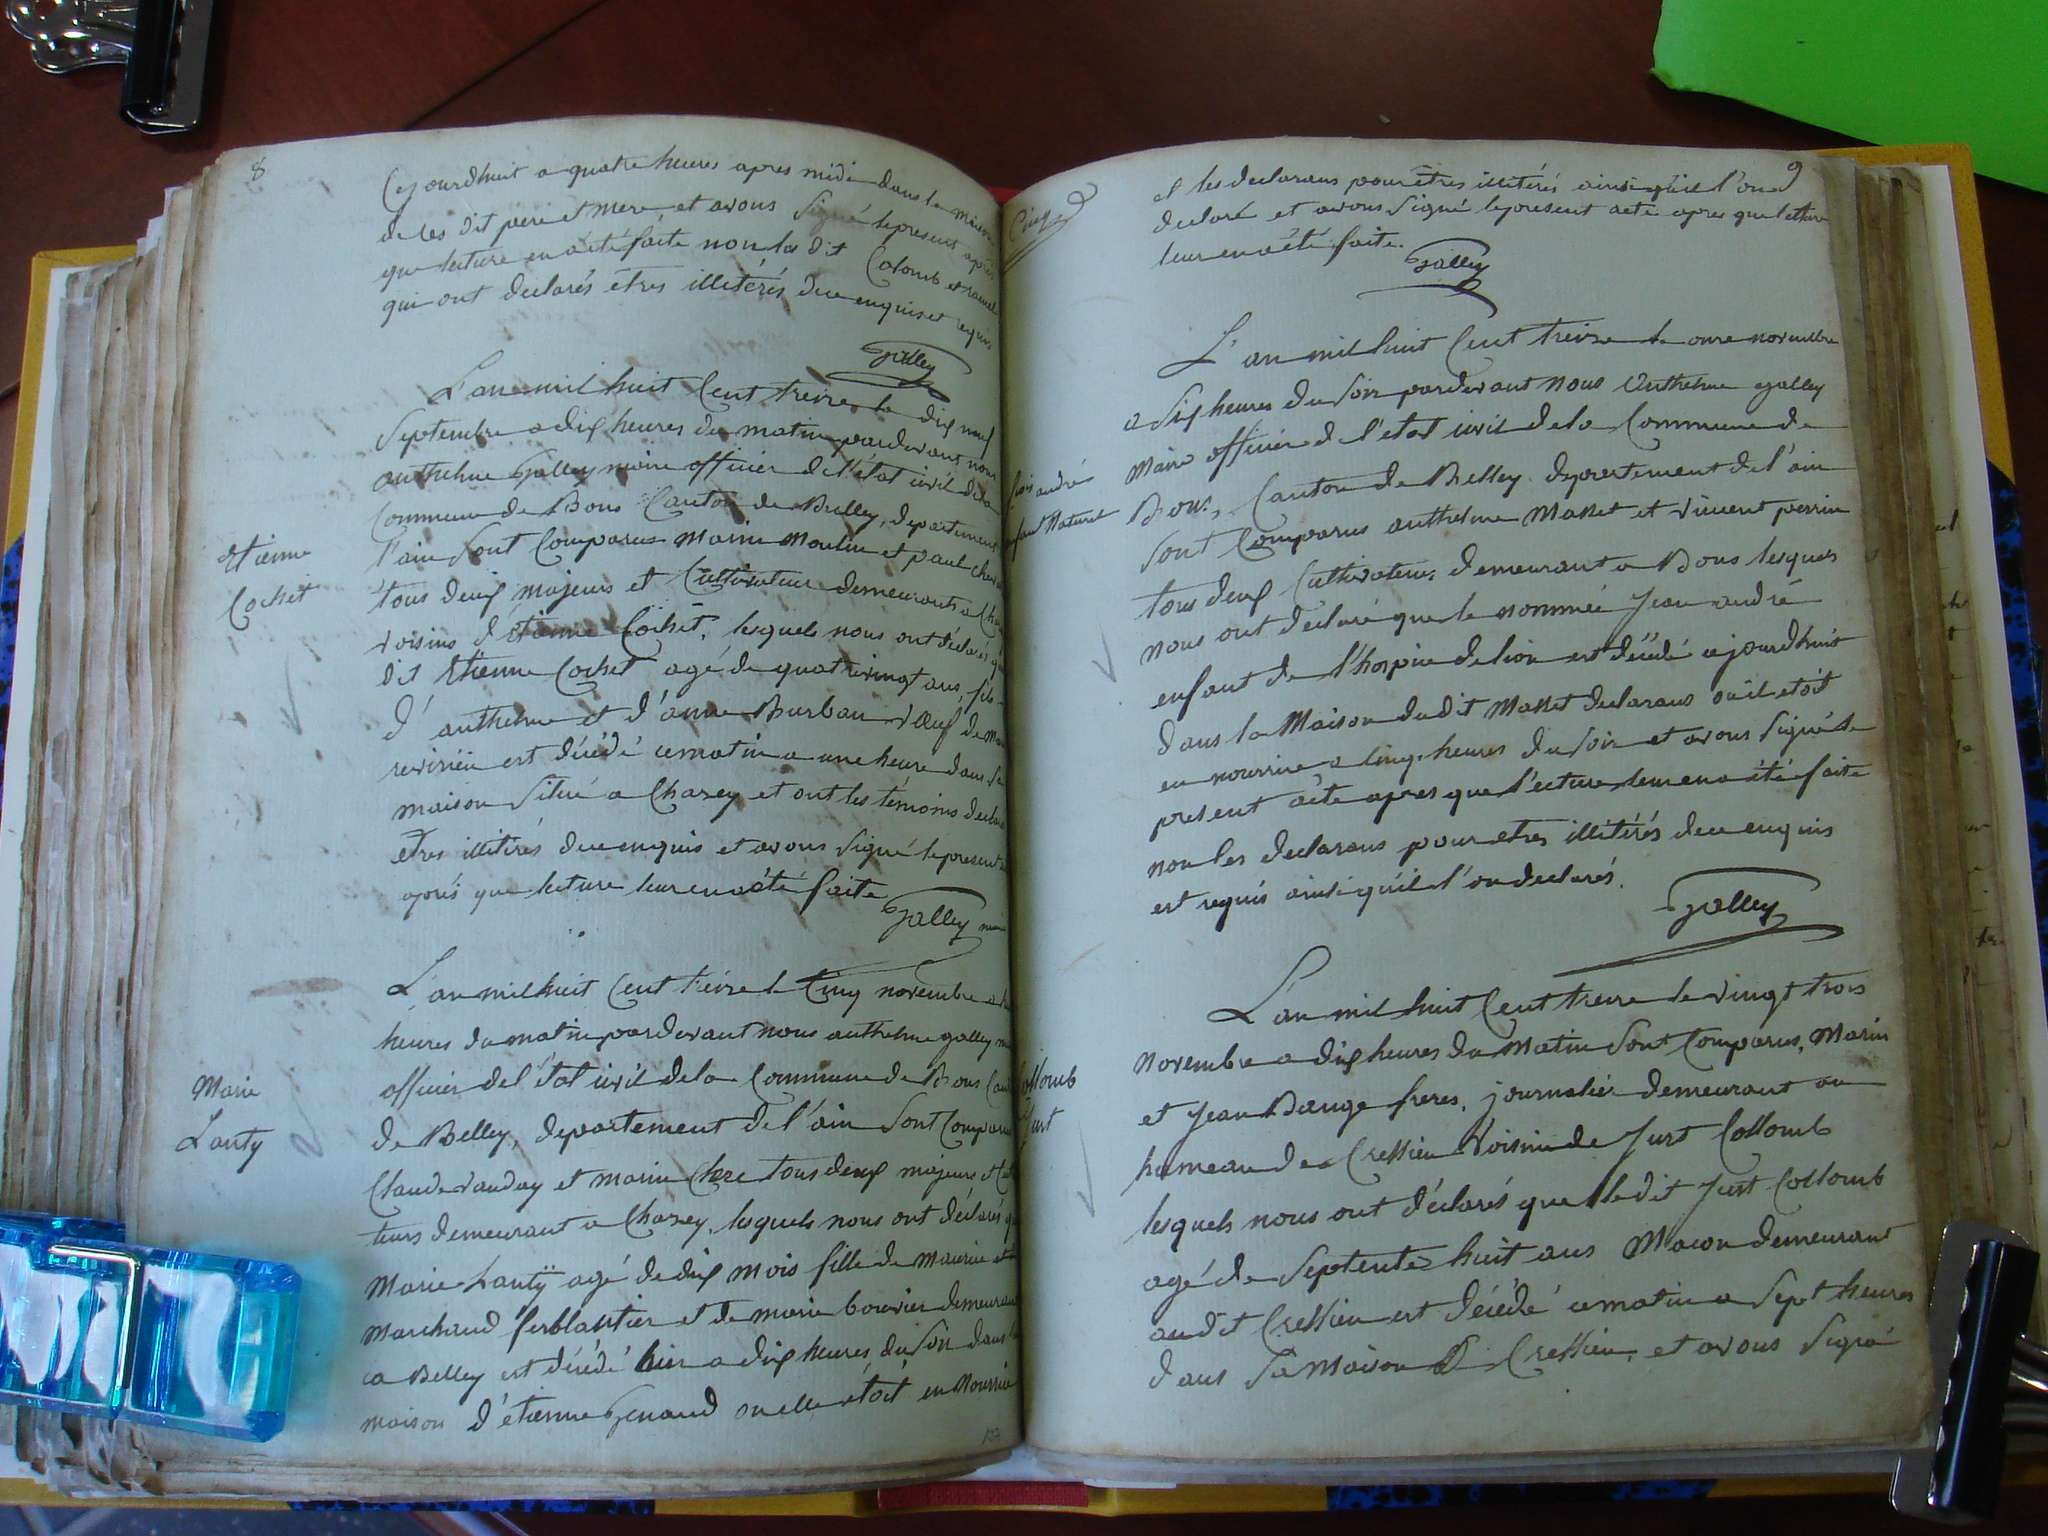 8
Cejourdhuit a quatre heures apres midi dans la maison
de ces dit pere et mere, et avons signé le present après
que lecture en a été faite non les dit Colomb et
qui ont declarés êtres illitérés de ce enquis et requis
Galley
L'an mil huit Cent treize le dix neuf
Septembre a dix heures du matin pardevant nous
anthelme Galley maire officier de l'état civil dela
Commune de Bons Canton de Belley, departement
l'ain Sont Comparus Marin Moulin et paul
tous deux majeurs et Cultivateur demeurants a
voisins d'étienne Cochet, lesquels nous ont déclarés
dit Etienne Cochet agé de quatrevingt ans, fils
d'anthelme et d'anne Burban veuf de
est décédé ce matin a une heure dans sa
maison située a Chazey et ont les témoins
êtres illitérés de ce enquis et avons signé le present
après que lecture leur en a été faite
Galley
Etienne
Cochet
L'an mil huit Cent treize le Cinq novembre a
heures du matin pardevant nous anthelme galley
officier de l'état civil dela Commune de Bons
de Belley, departement de l'ain Sont
Claude vauday et marin Clerc tous deux majeurs et
teurs demeurant a Chazey, lesquels nous ont déclarés
Marie Lanty agé de dix mois fille de Maurice et
Marchand ferblantier et de marie bouvier
a Belley est décédé hier a dix heures du Soir dans
maison d'étienne Genand ou elle étoit en nourrice
Marie
Lanty
9
et les declarans pour êtres illitérés ainsi qu'il l'on
declaré et avons Signé le present acte apres que lecture
leur en a été faite.
Galley
L'an mil huit Cent treize le onze novembre
a Six heures du Soir pardevant nous Anthelme galley
Maire officier de l'etat civil dela Commune de
Bons, Canton de Belley departement de l'ain
Sont Comparus anthelme Masset et vincent perrin
tous deux Cultivateurs demeurant a Bons lesquels
nous ont déclaré que le nommée Jean andré
enfant de l'hospice de lion est décédé cejourdhuit
dans la Maison dudit Masset declarans ou il etoit
en nourrice a Cinq heures du Soir et avons Signé le
present acte apres que lecture leur en a été faite
non les declarans pour etres illitérés de ce enquis
est requis ainsi qu'il l'on declarés.
Galley
andré
Naturel
L'an mil huit Cent treize le vingt trois
Novembre a dix heures du Matin Sont Comparus, Marin
et Jean Bauge freres, journalier demeurant au
hameau de Cressieu Voisin de Just Collomb
lesquels nous ont déclarés que le dit Just Collomb
agé de Septente huit ans Macon demeurant
audit Cressieu est décédé ce matin a Sept heures
dans Sa Maison D Cressieu, et avons Signé
Collomb
Just